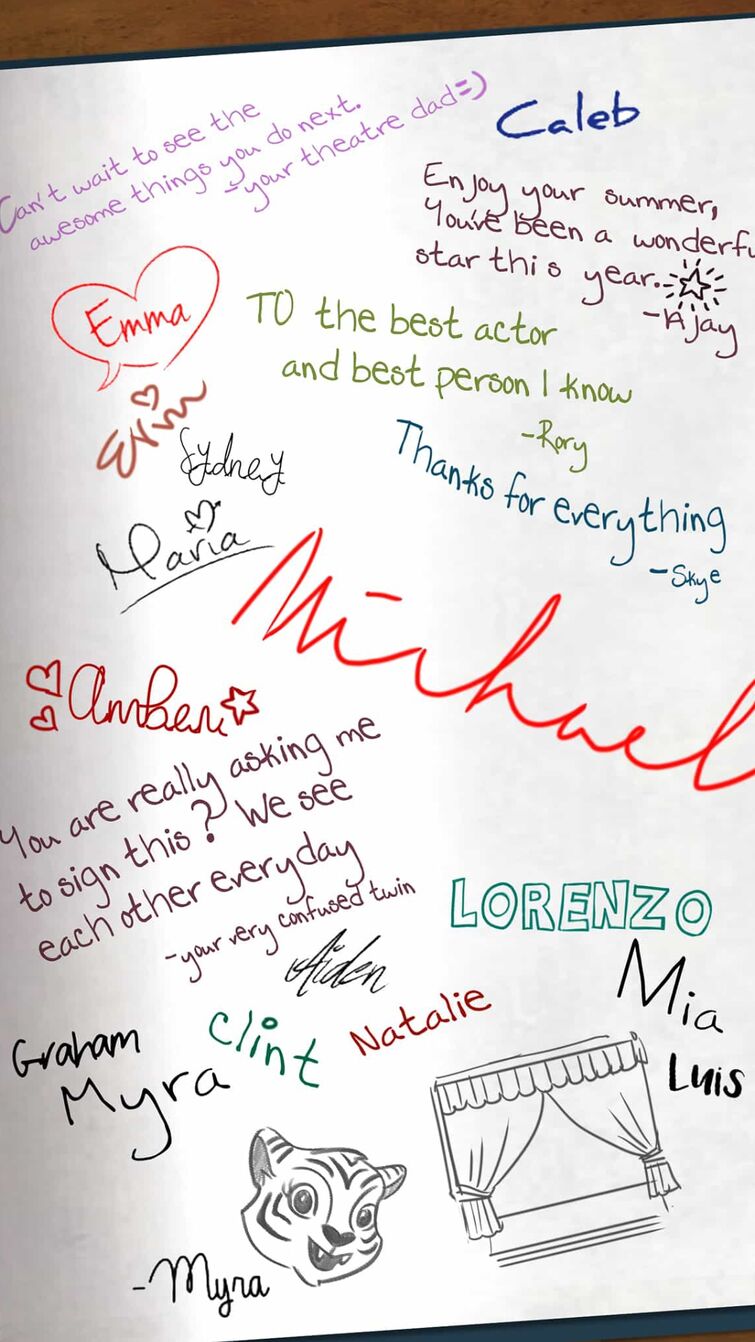 Can't wait to see the
awesome things you do next.
-your theatre dad=)
Caleb
Enjoy your summer,
You've been a wonderfu
star this year.
-Ajay
Emma
TO the best actor
and best person I know
-Rory
Erin
Sydney
Maria
Thanks for everything
-Skye
Michael
Amber
You are really asking me
to sign this? We see
each other everyday
-your very confused twin
Aiden
LORENZO
Mia
Luis
Graham
Clint
Natalie
Myra
-Myra